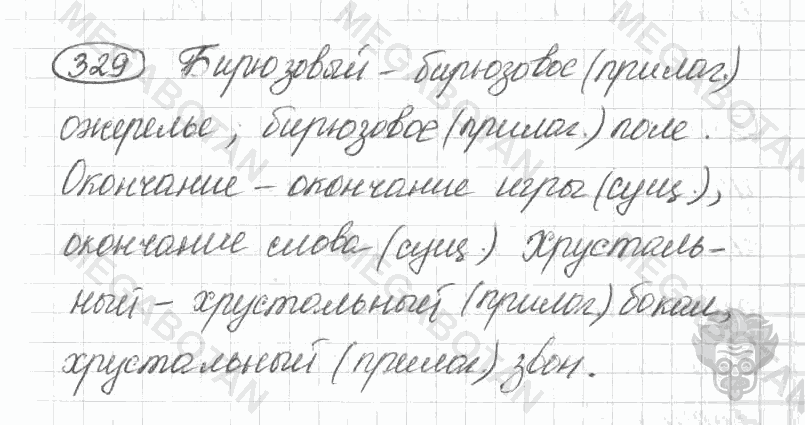 329 Бирюзовый - бирюзовое (прилаг.)
ожерелье, бирюзовое (прилаг.) поле.
Окончание - окончание игры (сущ.),
окончание слова (сущ.) Хрусталь-
ный - хрустальный (прилаг.) бокал,
хрустальный (прилаг.) звон.
MEGABOTAN